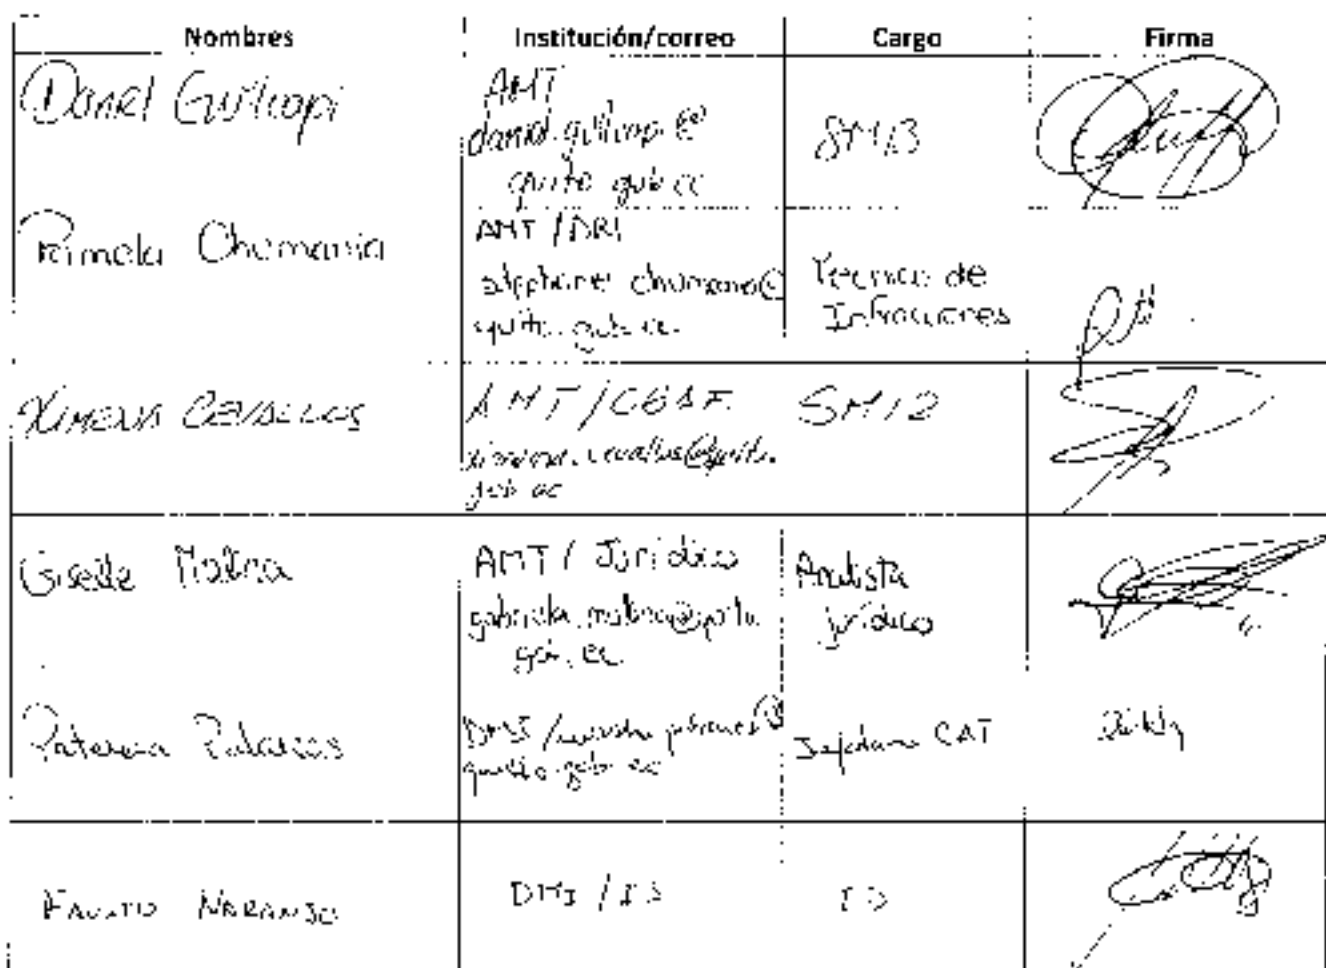 Nombres Institución/correo Cargo Firma
Daniel Guilcapi
AMT
daniel.guilcapi@
quito.gob.ec
SM13
Pamela Chumania
AMT / DRI
chumania@
quito.gob.ec
Técnico de
Infracciones
XIMENA CEVALLOS
AMT / CGAF
SM12
ximena.cevallos@quito.
gob.ec
Giselle Molina
AMT / Jurídico
gabriela.molina@quito.
gob.ec
Analista
jurídico
Patricia Palacios
DMI /
quito.gob.ec
CAT
FAUSTO NARANJO
DMI /